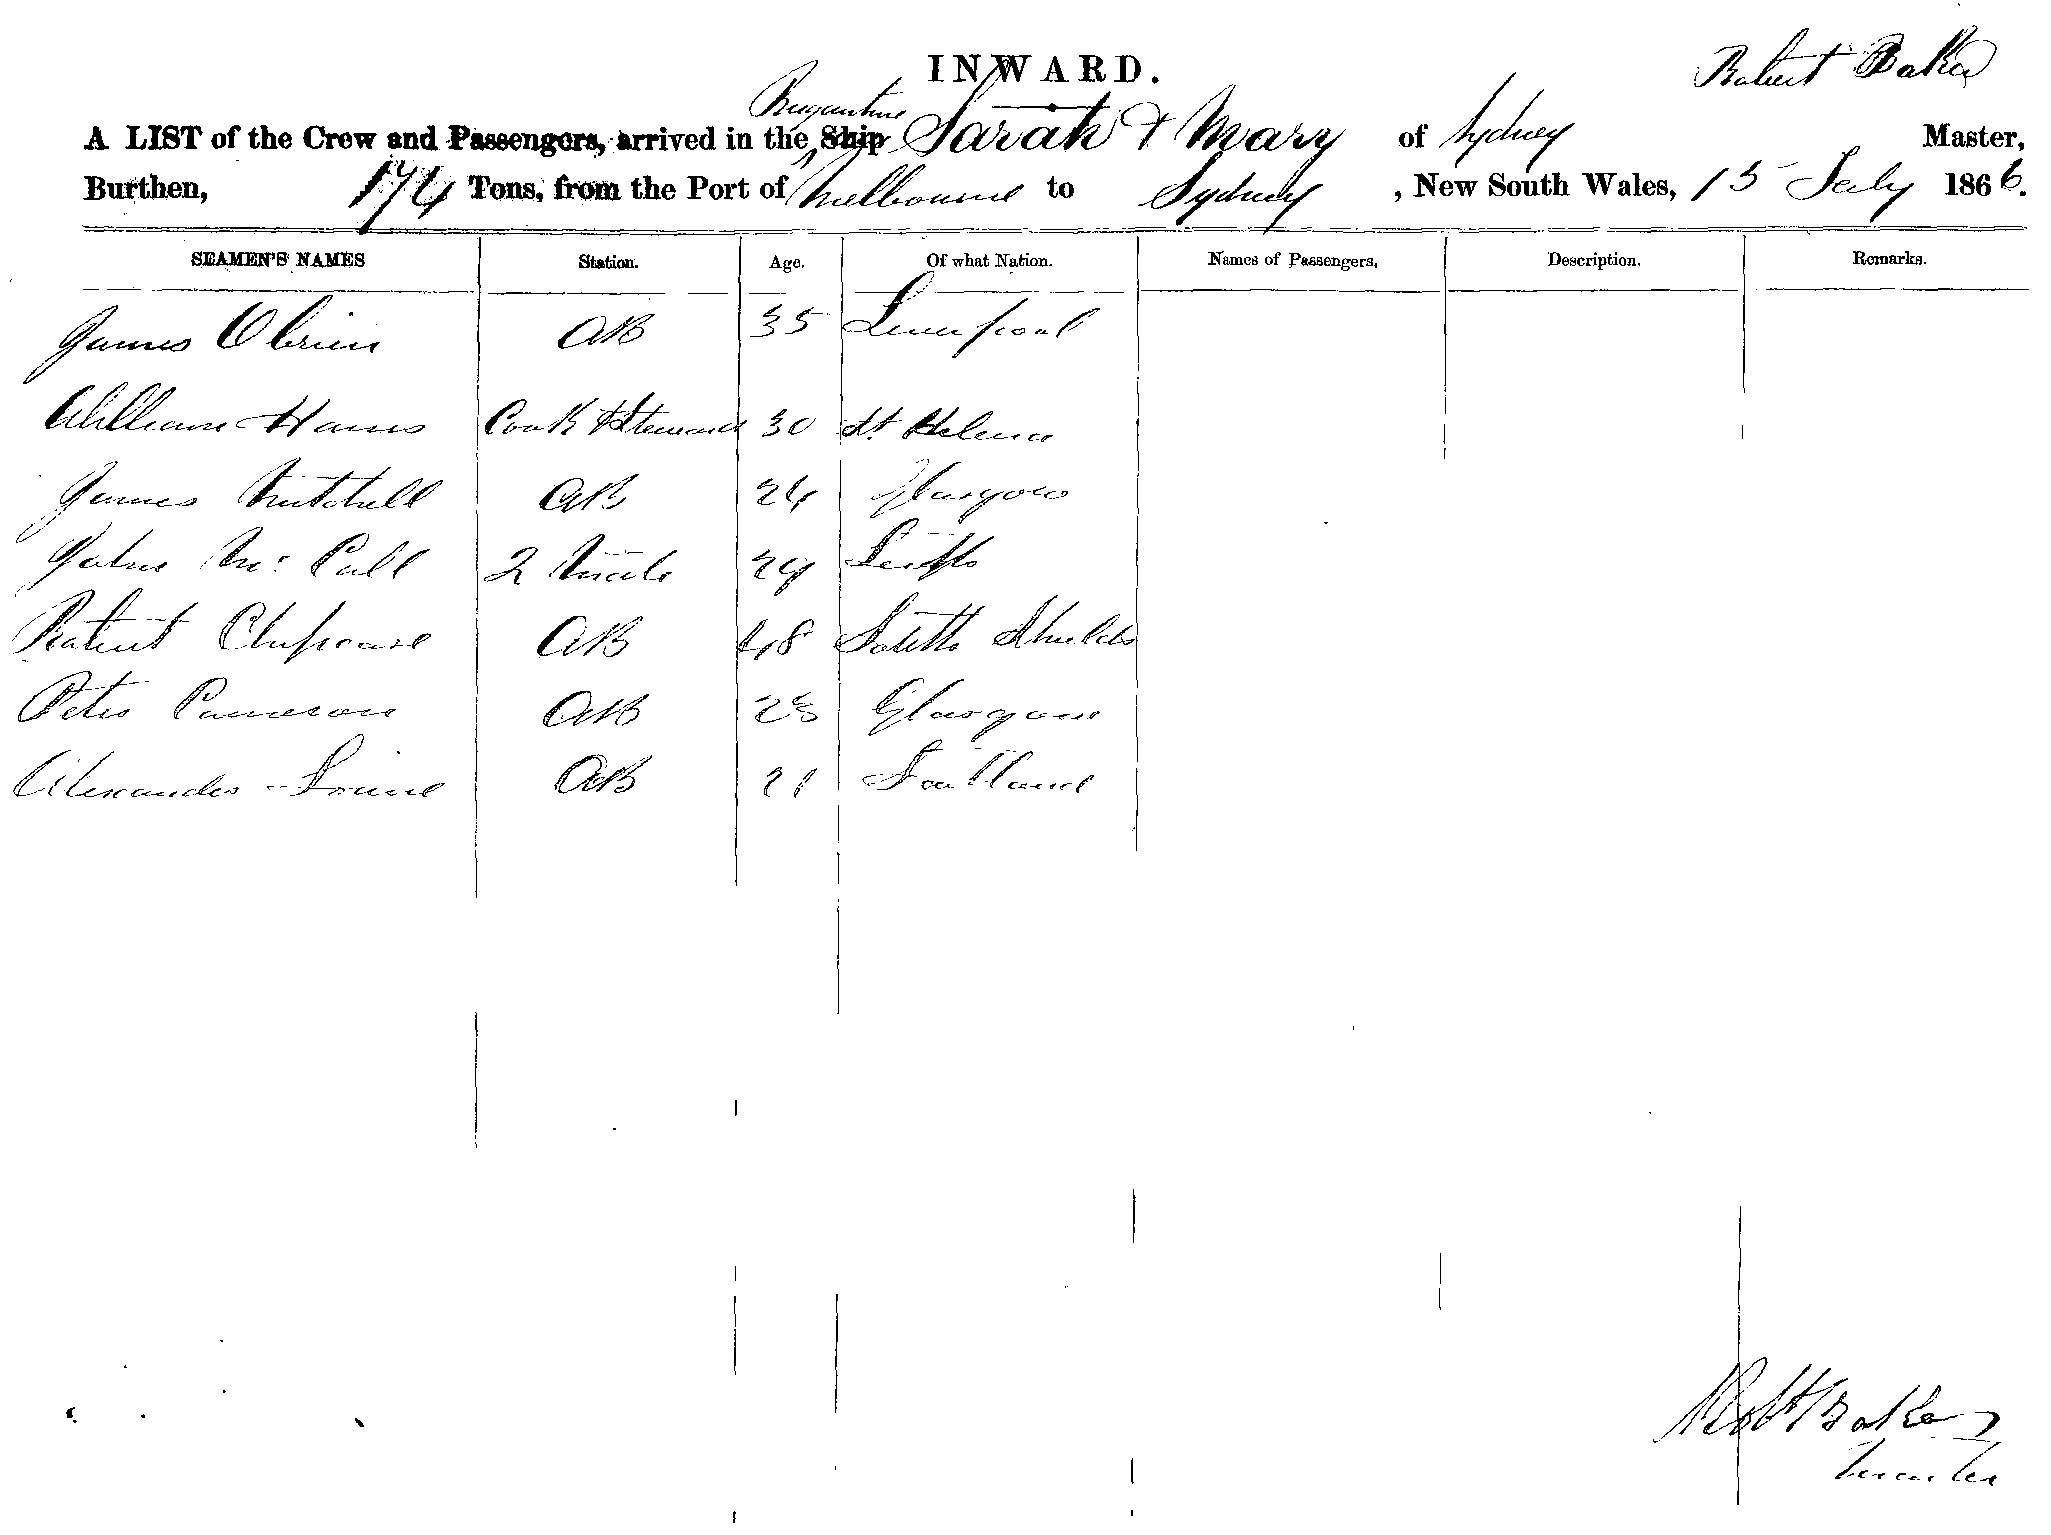 INWARD.
Robert Baker
Brigantine
A LIST of the Crew and Passengers, arrived in the Ship Sarah & Mary of Sydney Master,
Burthen, 174 Tons, from the Port of Melbourne to Sydney , New South Wales, 15 July 1866.
SEAMEN'S NAMES Station. Age. Of what Nation. Names of Passengers, Description. Remarks.
James Obrien AB 35 Liverpool
William Harris Cook & Steward 30 St Helena
James Mitchell AB 24 Glasgow
John Mc Call 2 Mate 29 Leith
Robert AB 48 South Shields
Peter Cameron AB 28 Glasgow
Alexander AB 21 Scotland
Robt Baker
Master